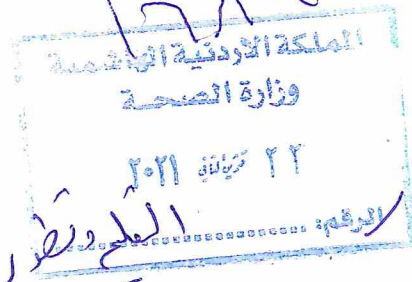 المملكة الاردنية الهاشمية
وزارة الصحة
٢٢ تشرين الثاني ٢٠٢١
الرقم: